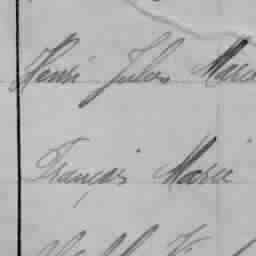 Henri Jules Marie
François Marie